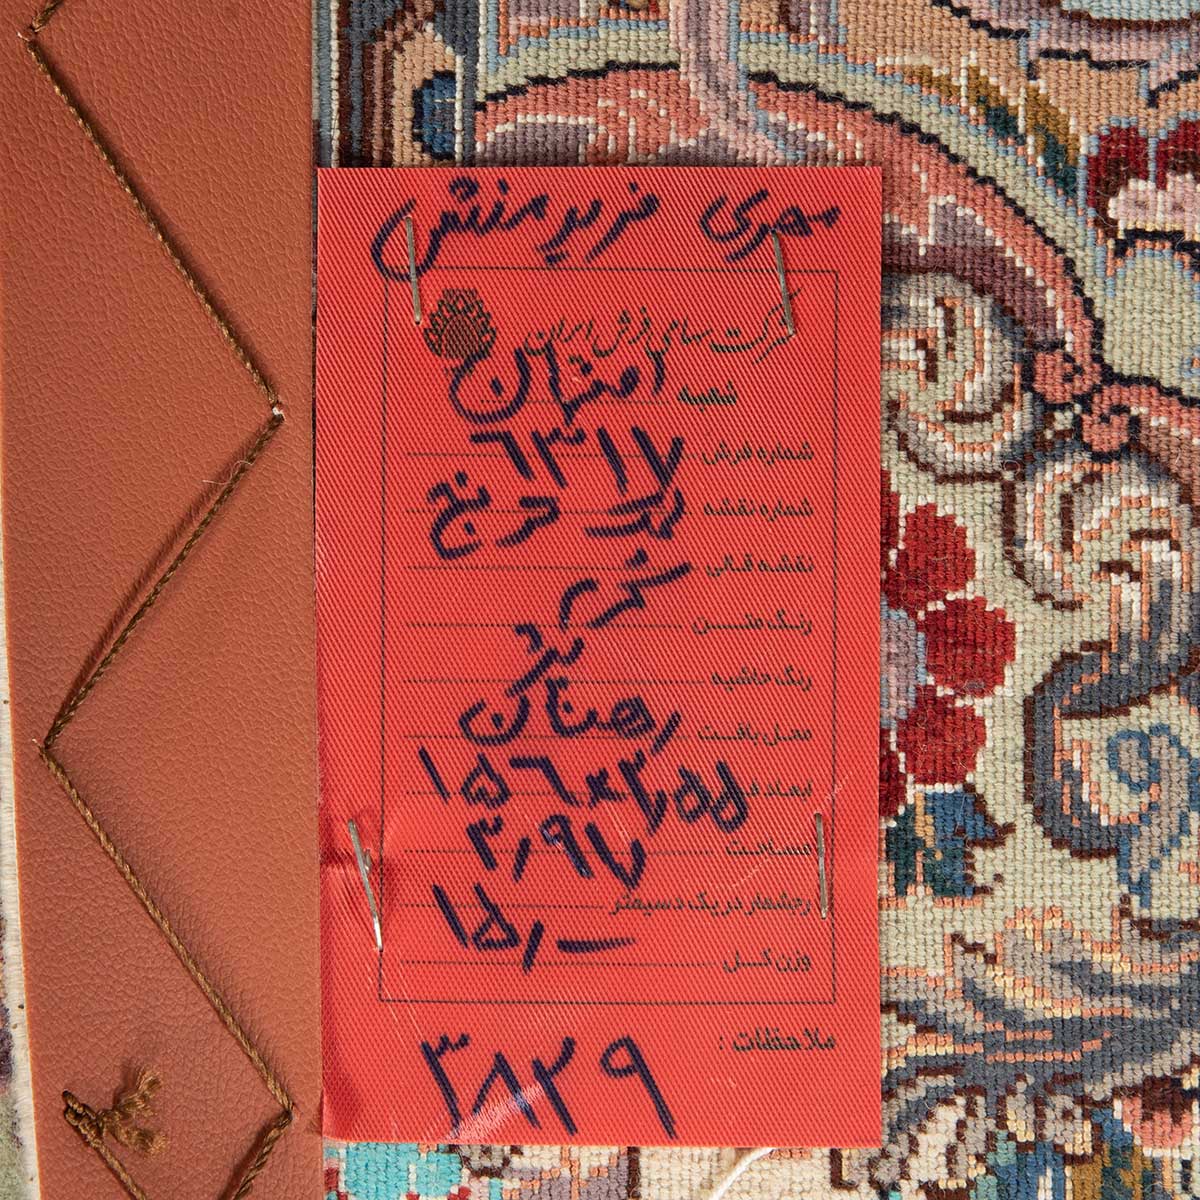 مهری فریدمنش
شرکت سهامی فرش ایران
شعبه اصفهان
شماره فرش ۶۳۱۷
شماره نقشه لچک ترنج
نقشه قالی
رنگ متن کرم
رنگ حاشیه
محل بافت رهنان
ابعاد ۱۵۶×۲٫۵۵
مساحت ۳٫۹۷
رجشمار در یک دسیمتر
وزن کل ۱۵٫–
ملاحظات :
۳۸۲۹